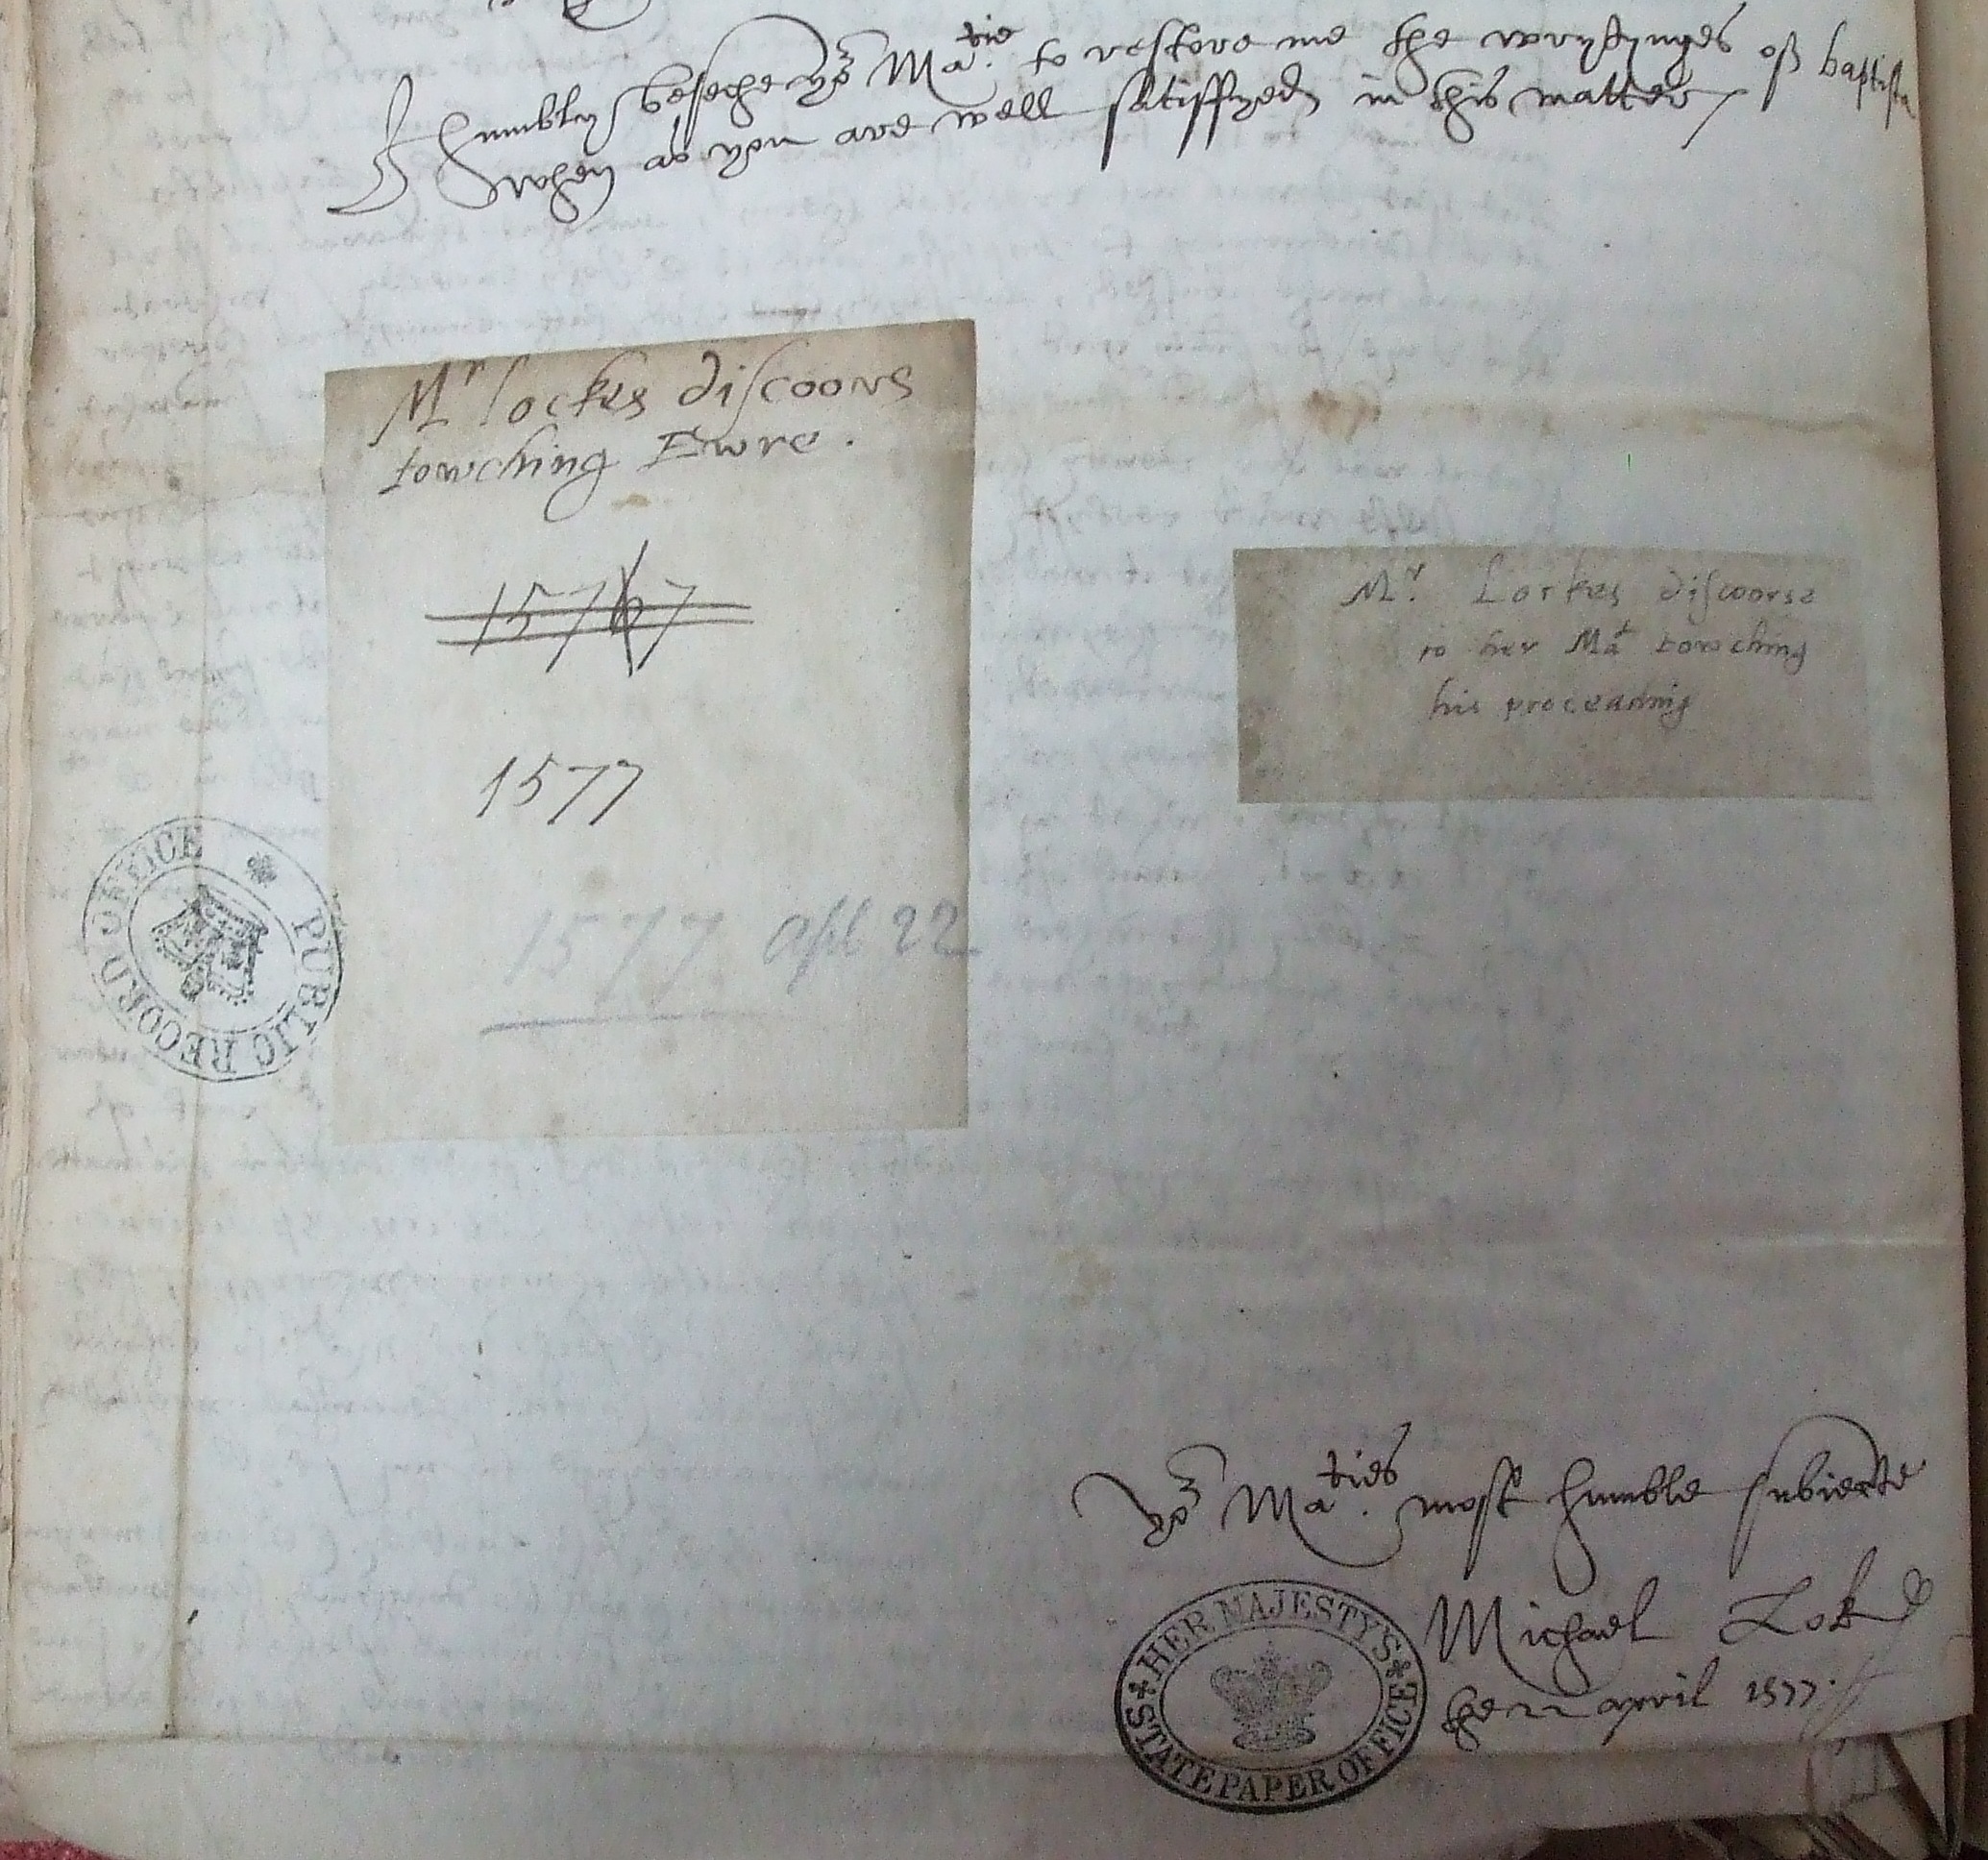 I humbly beseche yor Matie to restore me the wrytynges of baptista
when as you are well satisffyed in this matter
Mr lockes discoors
towching Ewre.
15767
1577
1577 Apl 22
Mr. Lockes discoorse
to her Mat towching
his proceading
PUBLIC RECORD OFFICE
yor Maties most humble subiecte
Michael Lok
the 22 april 1577.
HER MAJESTY'S
STATE PAPER OFFICE